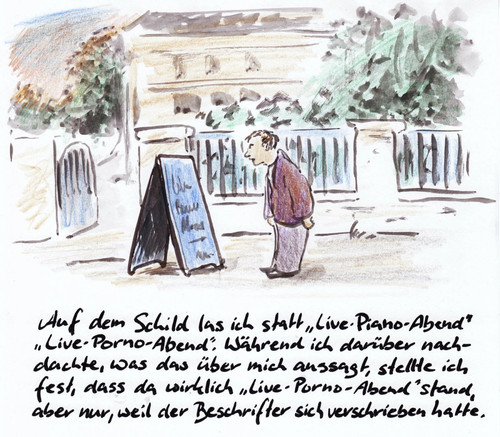 Auf dem Schild las ich statt „Live-Piano-Abend“
„Live-Porno-Abend“. Während ich darüber nach-
dachte, was das über mich aussagt, stellte ich
fest, dass da wirklich „Live-Porno-Abend“ stand,
aber nur, weil der Beschrifter sich verschrieben hatte.